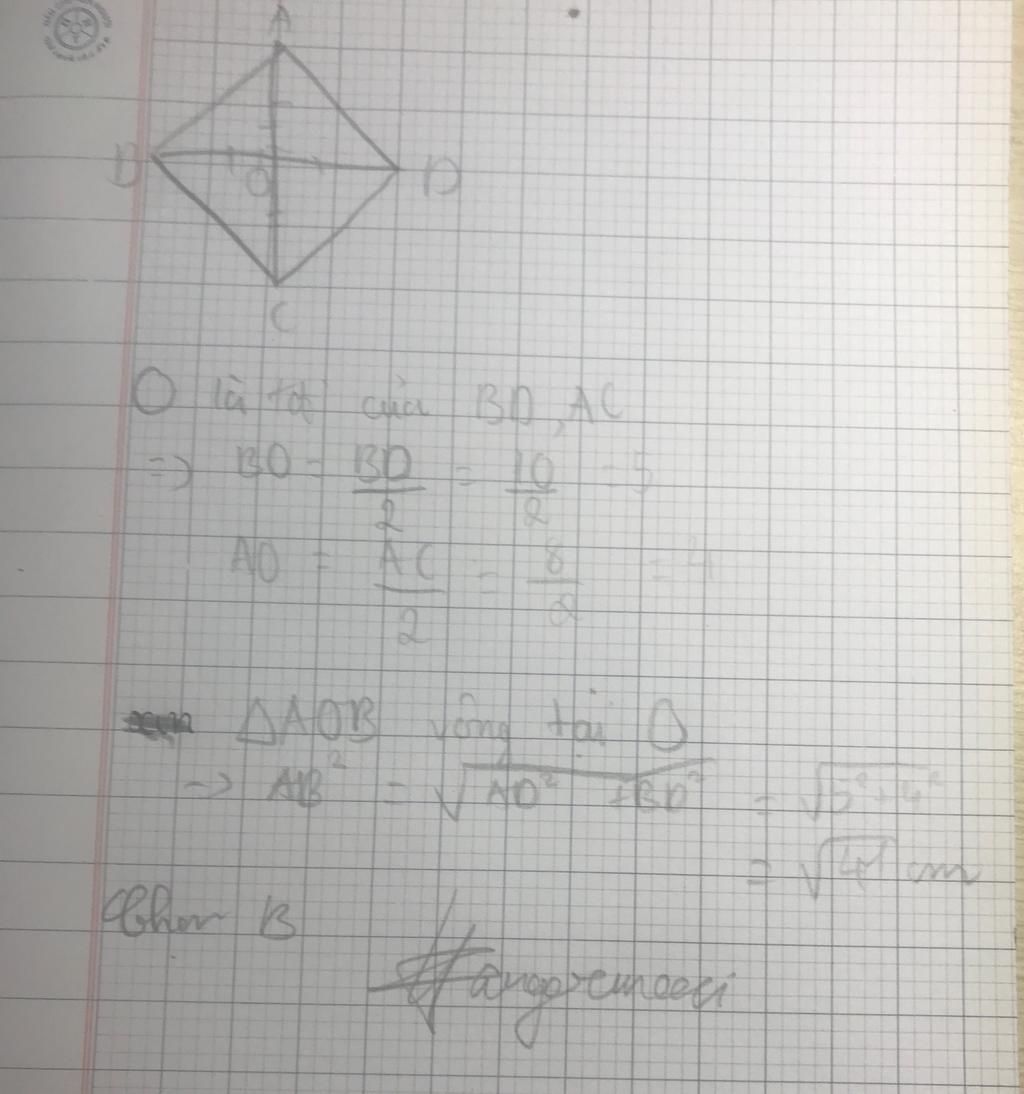 A
B
O
D
C
O là tđ của BD, AC
=> BO = BD/2 = 10/2 = 5
AO = AC/2 = 8/2 = 4
ΔAOB vông tại O
=> AB² = √AO² + BO² = √5² + 4²
= √41 cm
Chọn B